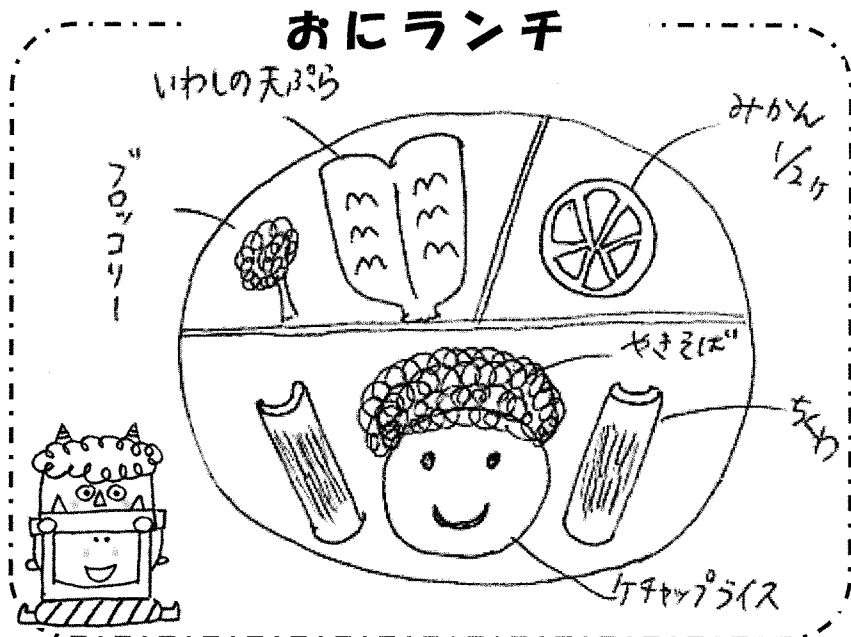 おにランチ
いわしの天ぷら
みかん
1/2ヶ
ブロッコリー
やきそば
ちくわ
ケチャップライス